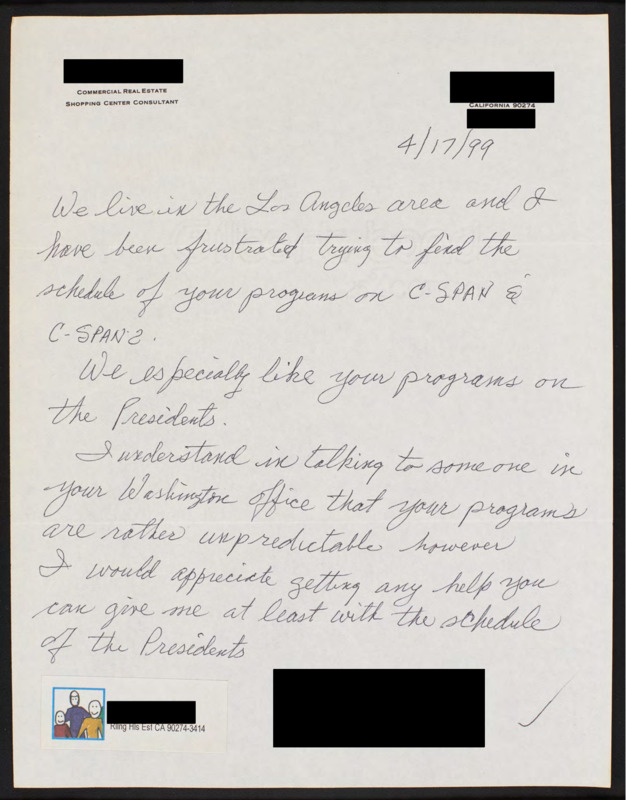 COMMERCIAL REAL ESTATE
SHOPPING CENTER CONSULTANT
CALIFORNIA 90274
4/17/99
We live in the Los Angeles area and I
have been frustrated trying to find the
schedule of your programs on C-SPAN &
C-SPAN 2.
We especially like your programs on
the Presidents.
I understand in talking to someone in
your Washington office that your programs
are rather unpredictable however
I would appreciate getting any help you
can give me at least with the schedule
of the Presidents
Rllng Hls Est CA 90274-3414